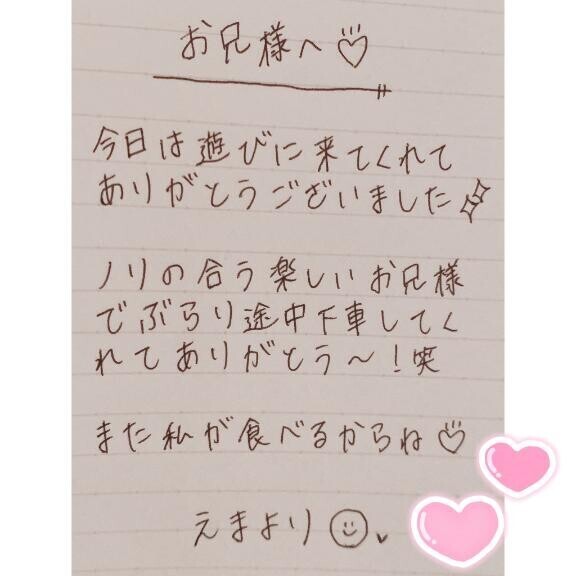 お兄様へ♡
今日は遊びに来てくれて
ありがとうございました
ノリの合う楽しいお兄様
でぶらり途中下車してく
れてありがとう〜!笑
また私が食べるからね♡
えまより